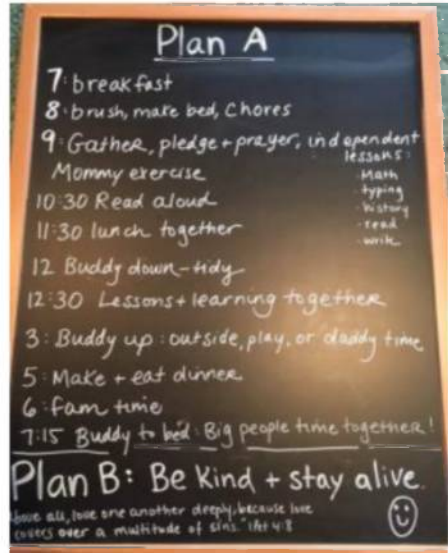 Plan A
7: breakfast
8: brush, make bed, Chores
9: Gather, pledge + prayer, independent
lessons:
Mommy exercise
· Math
· typing
· history
· read
· write
10:30 Read aloud
11:30 lunch together
12 Buddy down - tidy
12:30 Lessons + learning together
3: Buddy up: outside, play, or daddy time
5: Make + eat dinner
6: fam time
7:15 Buddy to bed: Big people time together!
Plan B: Be Kind + stay alive.
"Above all, love one another deeply, because love
covers over a multitude of sins." 1 Pet 4:8